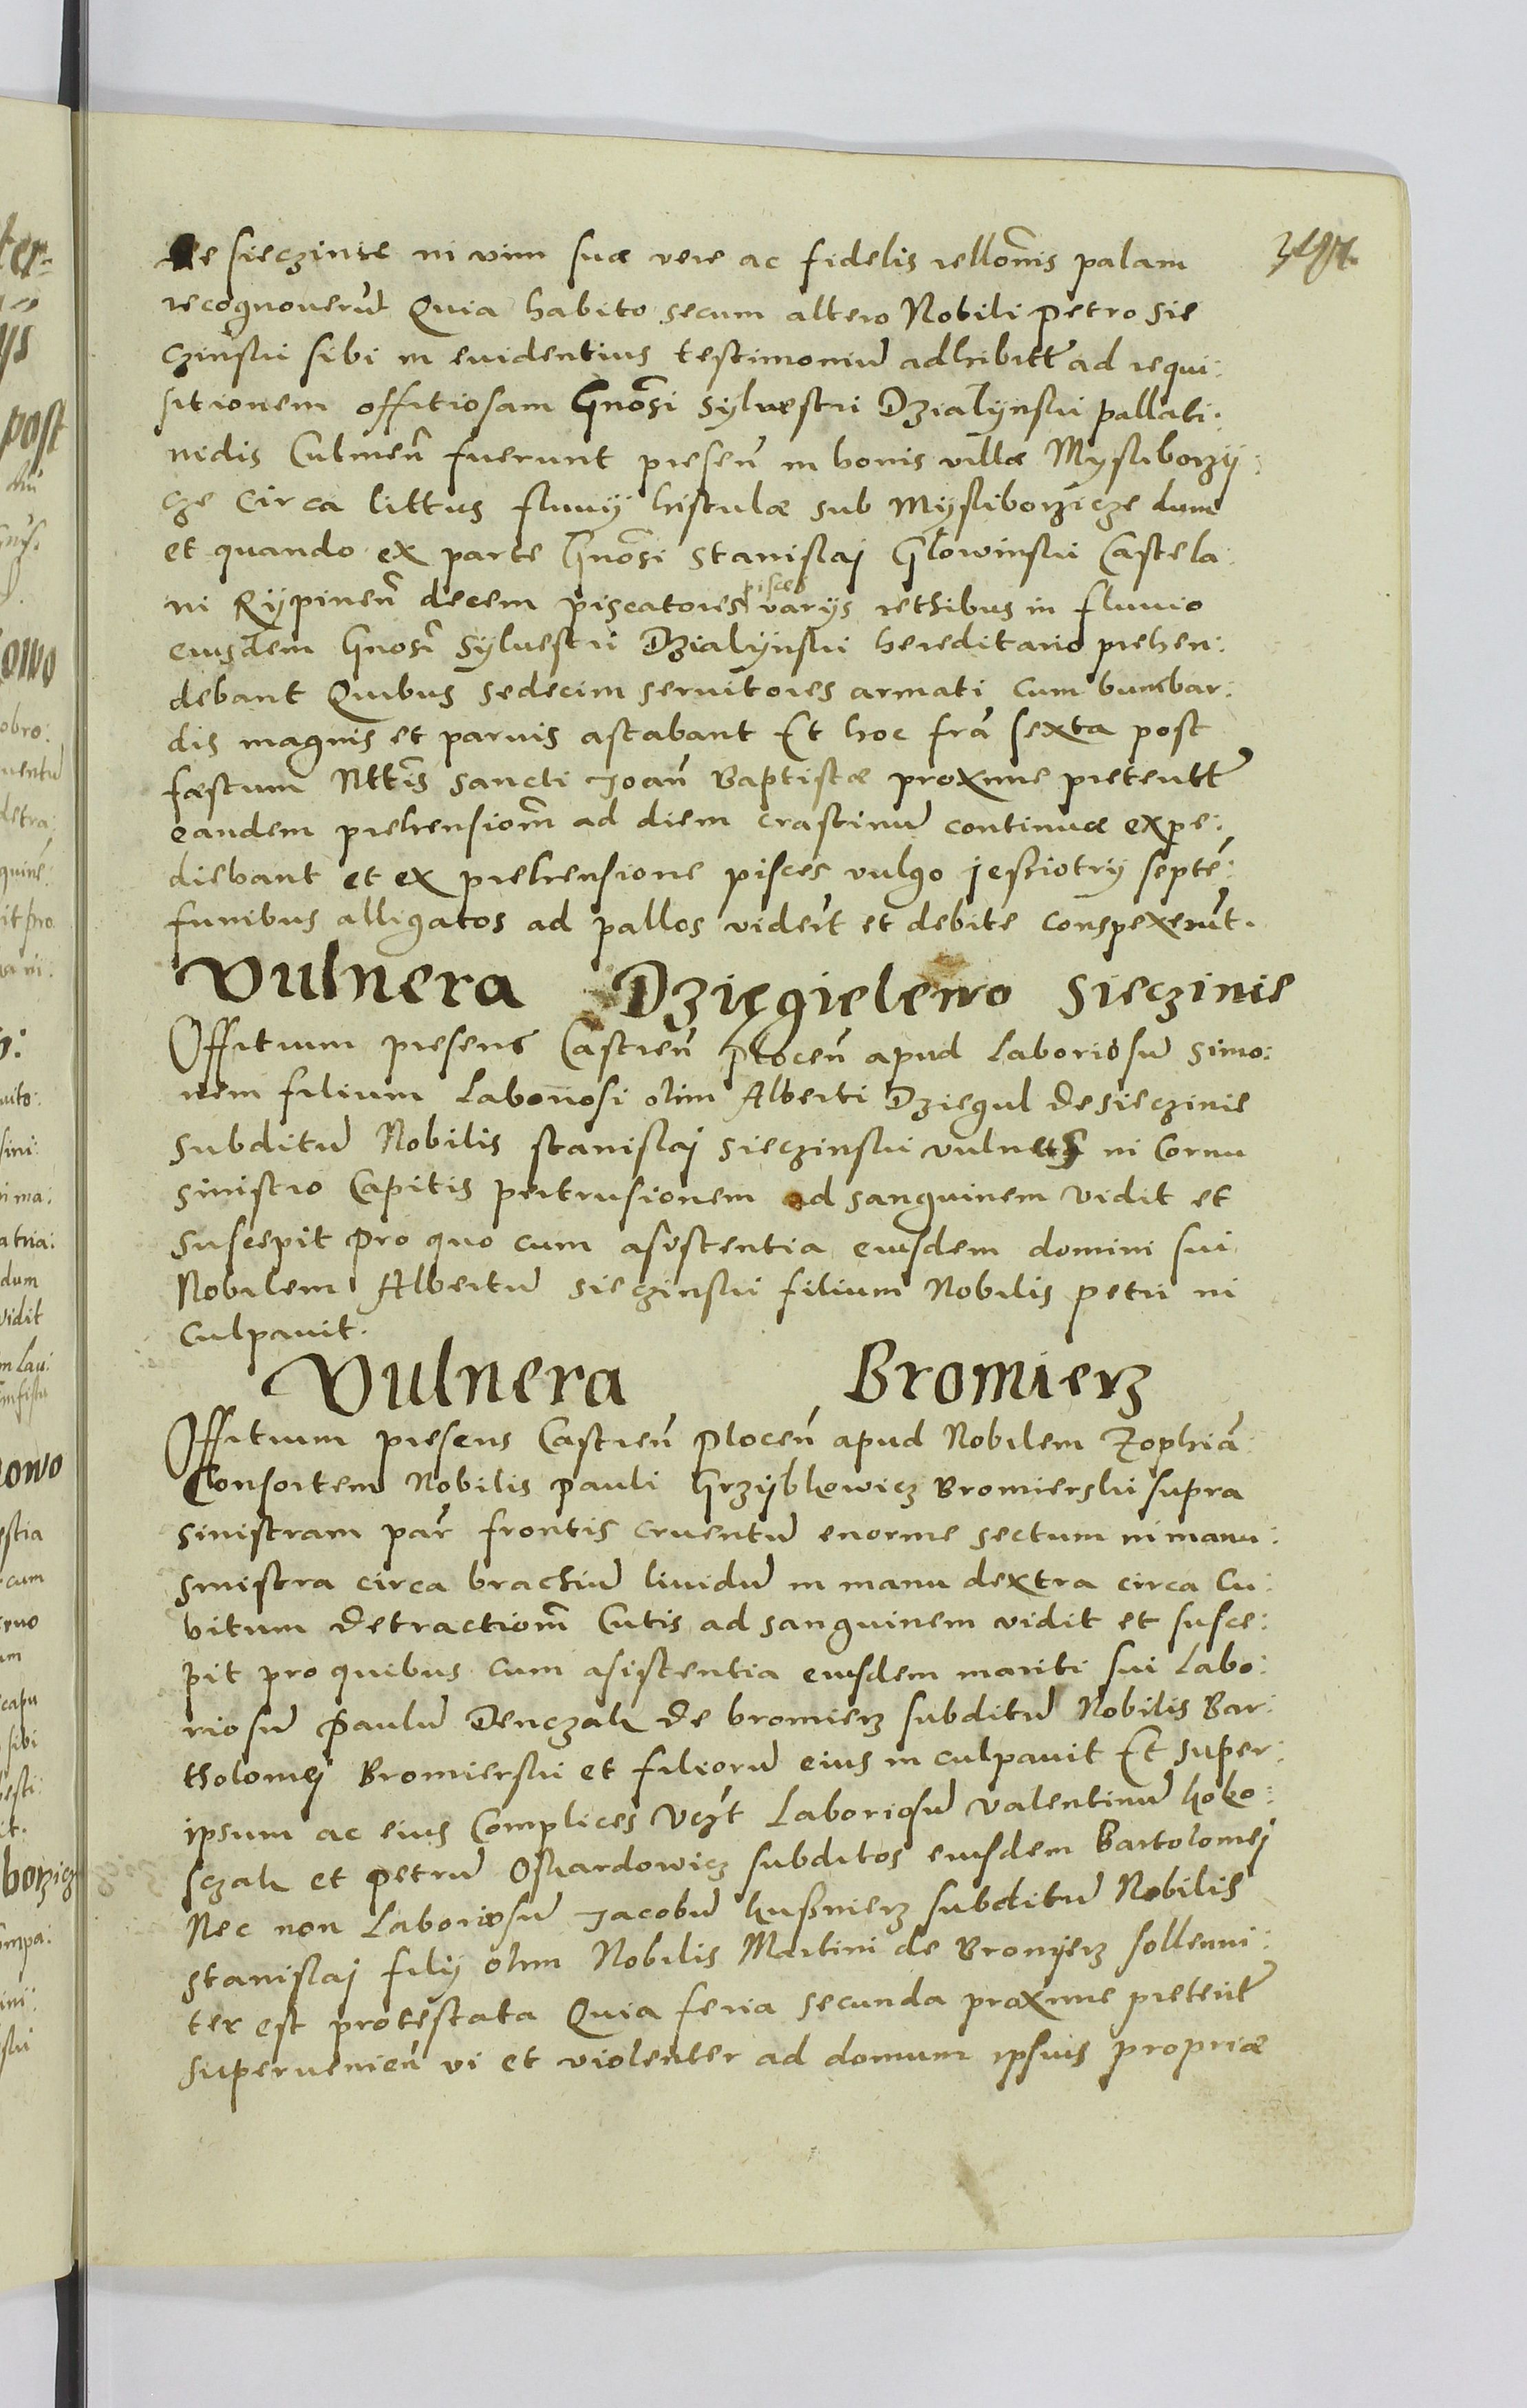 de Sieczinie in vim suæ vere ac fidelis rellonis palam
recognouerūt Quia habito secum altero Nobili Petro Sie
czinski sibi in euidentius testimoniū adhibitt ad requi:
sitionem offitiosam Gnosi Sylvestri Dzialijnski pallati:
nidis Culmen̄ fuerunt presen̄ in bonis villæ Mysliborzij:
cze Circa littus fluuij histulæ sub Mijsliborzicze dum
et quando ex parte Gnosi Stanislaj Glowinski Castela:
ni Rijpinen̄ decem piscatores pisces varijs rethibus in fluuio
eiusdem Gnosi Sylvestri Dzialijnski hereditario prehen:
debant Quibus sedecim seruitores armati cum bumbar:
dis magnis et paruis astabant Et hoc fra sexta post
fæstum Nttis Sancti Joan̄ Baptistæ proxime preteritt
eandem prehensionm ad diem crastinū continuæ expe:
diebant et ex prehensione pisces vulgo jesziotrij septē
funibus alligatos ad pallos viderūt et debite conspexerūt.
Vulnera Dzięgielewo Sieczinie
Offitium presens Castren̄ Plocen̄ apud Laboriosū Simo:
nem filium Laboriosi olim Alberti Dziegul de Sieczinie
Subditū Nobilis Stanislaj Sieczinski vulnus in Cornu
Sinistro Capitis pertrusionem ad sanguinem vidit et
Suscepit pro quo cum asistentia eiusdem domini sui
Nobilem Albertū Sieczinski filium Nobilis Petri in
culpauit.
Vulnera Bromierz
Offitium presens Castren̄ Plocen̄ apud Nobilem Zophiā
Consortem Nobilis Pauli Grzijbkowicz Bromierski supra
sinistram par frontis cruentū enorme sectum in manu:
sinistra circa brachiū liuidū in manu dextra circa Cu:
bitum detractionm Cutis ad sanguinem vidit et susce:
pit pro quibus cum asistentia eiusdem mariti sui Labo:
riosū Paulū Denczak de bromierz subditū Nobilis Bar:
tholomej Bromierski et filiorū eius in culpauit Et super:
ipsum ac eius Complices Vczt Laboriosū Valentinū koko:
sczak et Petrū Oskardowicz subditos eiusdem Bartolomej
Nec non Laboriosū Jacobū kußnierz subditū Nobilis
Stanislaj filij olim Nobilis Martini de Bromierz sollenni:
ter est protestata Quia feria secunda proxime preterit
superuenien̄ vi et violenter ad domum ipsius propriæ